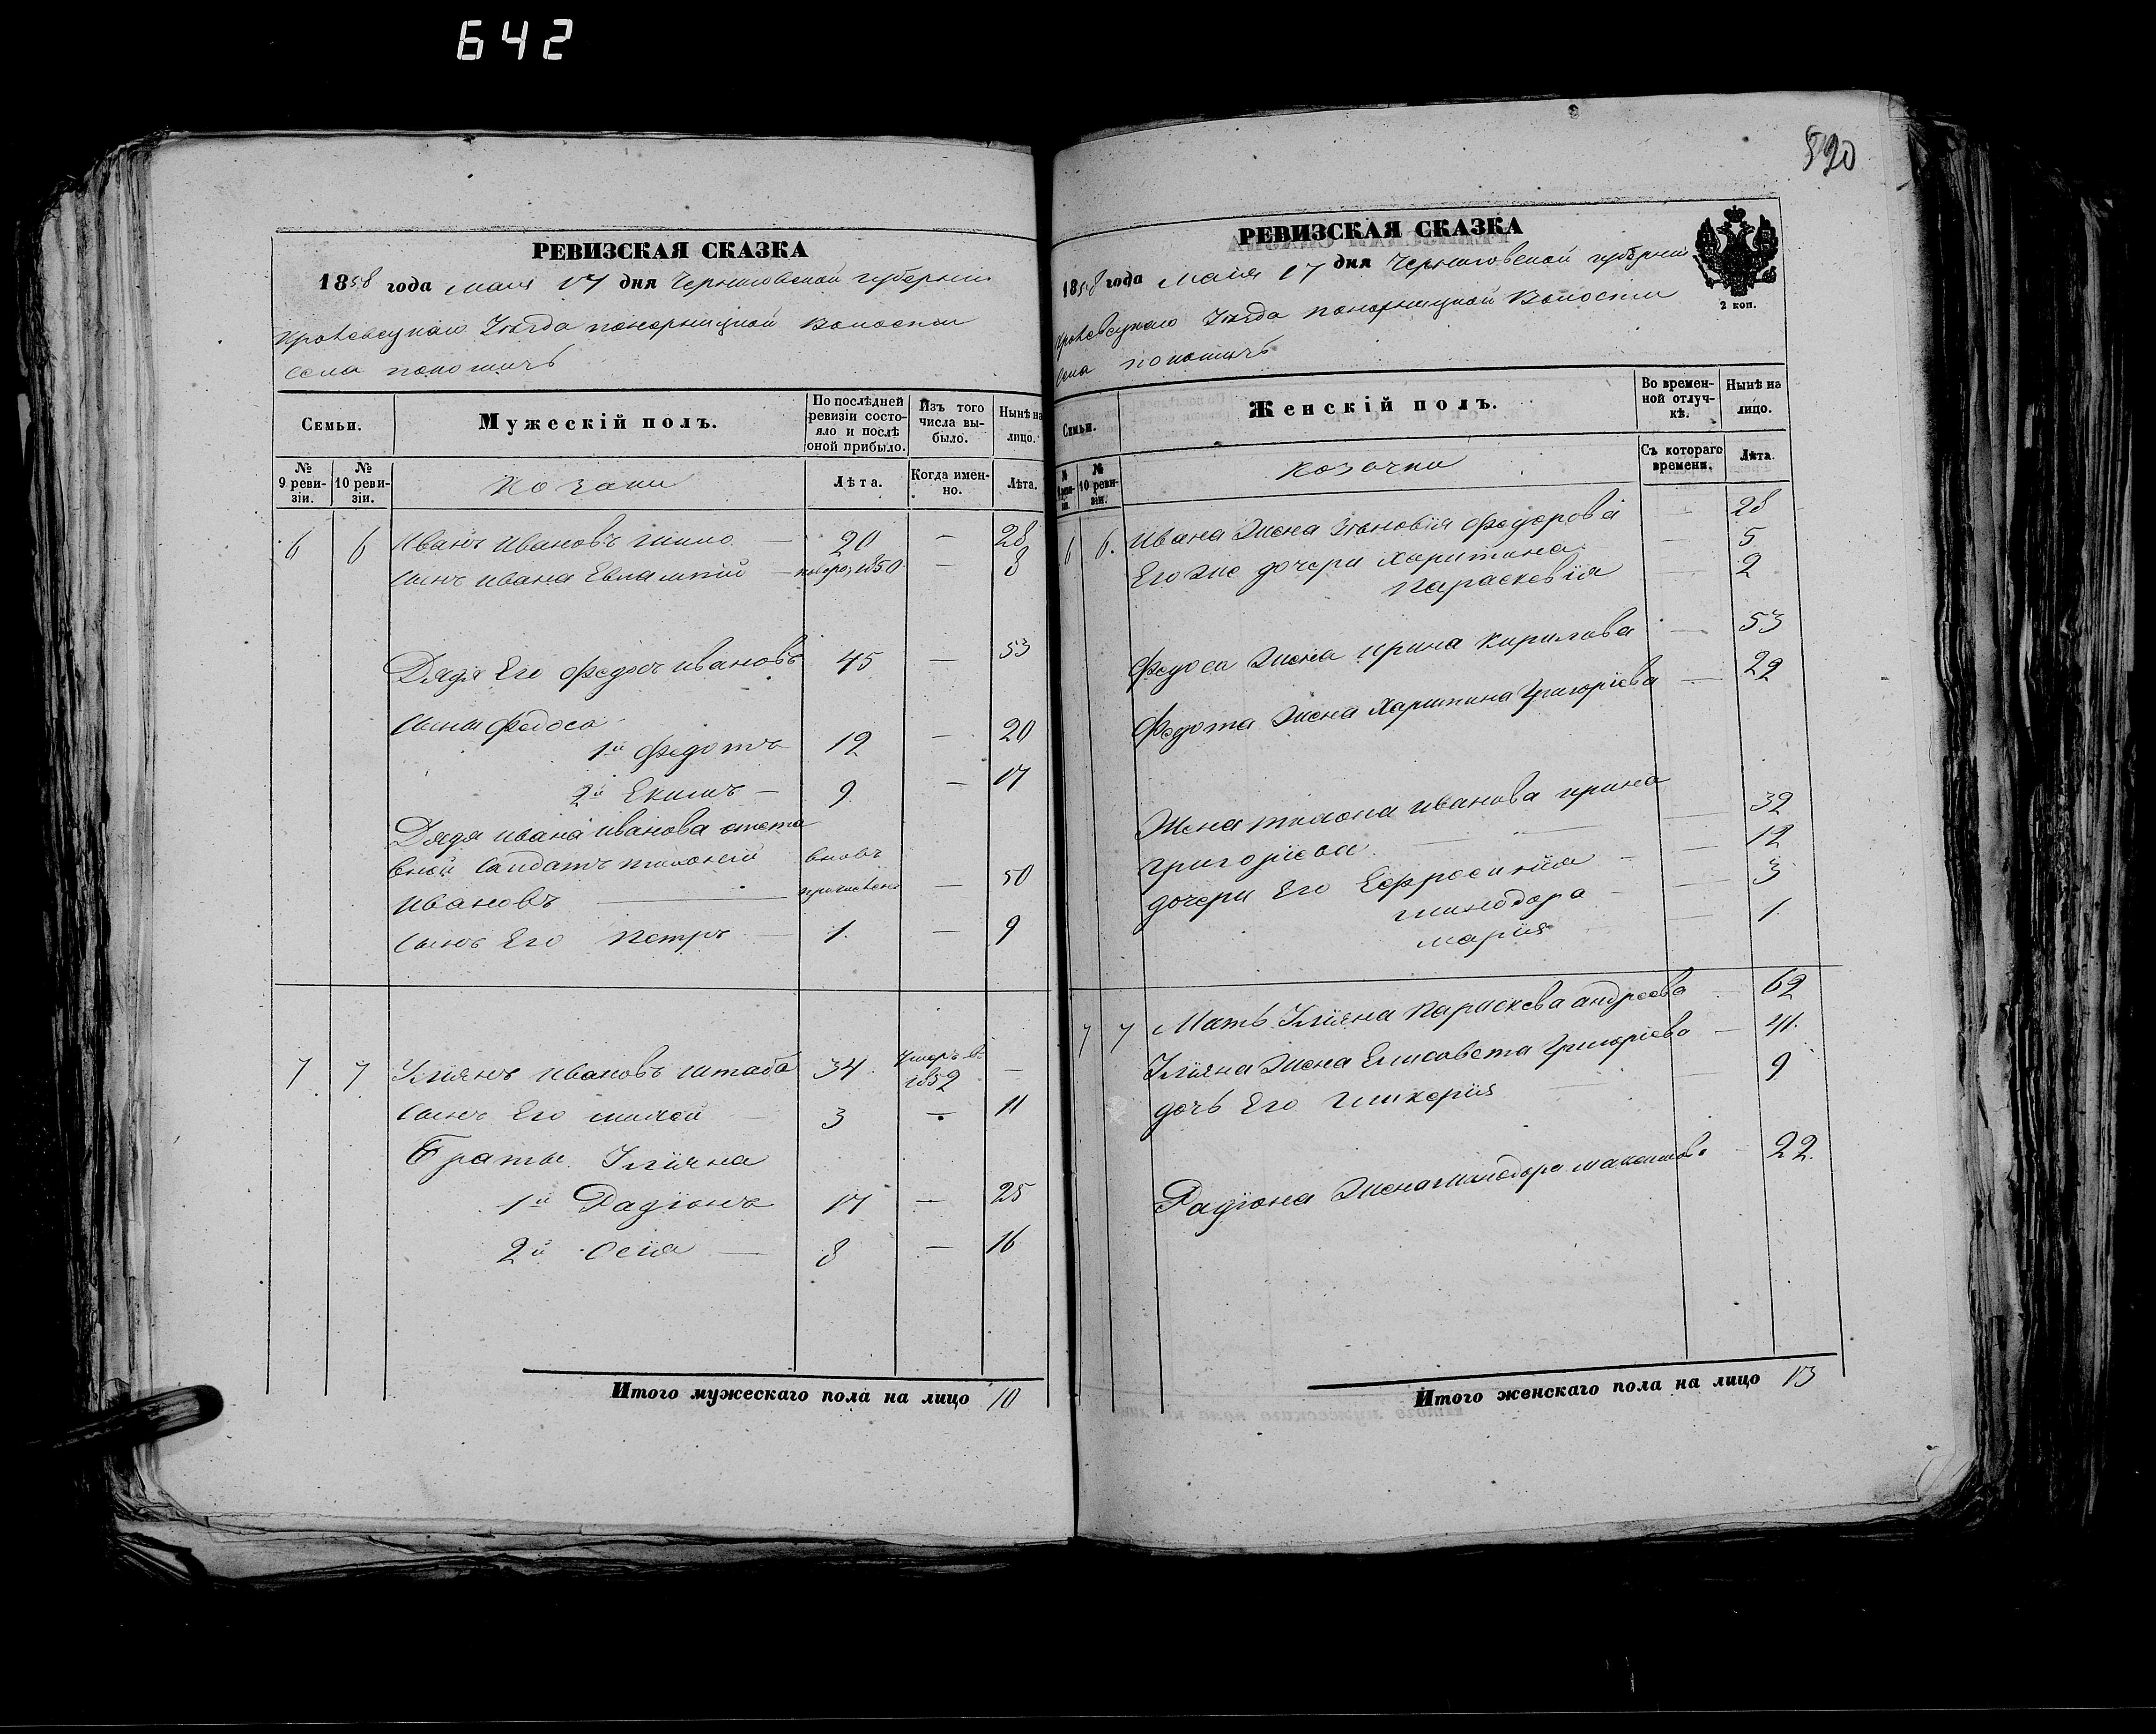 642
520
РЕВИЗСКАЯ СКАЗКА
1858 года маия 17 дня Черниговской губернии
Кролевецкаго Уезда понорницкой Волости
села
Семьи.
Мужескій полъ.
По послѣдней ревизіи состояло и послѣ оной прибыло.
Изъ того числа выбыло.
Нынѣ на лицо.
№ 9 ревизіи.
№ 10 ревизіи.
Козаки
Лѣта.
Когда именно.
Лѣта.
6 6 Иванъ Ивановъ — 20 — 28
Сынъ Ивана Евлампий — 1850 — 8
Дядя Его Федосъ Ивановъ 45 — 53
Сыны Федоса
1й Федотъ 12 — 20
2й Екимъ — 9 — 17
Дядя Ивана Иванова отста
вной Салдатъ вновь
Ивановъ — — 50
Сынъ Его Петръ — 1. — 9
7 7 Улиянъ Ивановъ Штаба 34 Умеръ в 1852 —
Сынъ Его — 3 — 11
Браты Улияна
1й Радіонъ 17 — 25
2й — 8 — 16
Итого мужескаго пола на лицо 10
РЕВИЗСКАЯ СКАЗКА
1858 года Маия 17 дня Черниговской губернии
2 коп.
Кролевецкаго Уезда понорницкой Волости
Села
Семьи.
Женскій полъ.
Во временной отлучкѣ.
Нынѣ на лицо.
№ 10 ревизіи.
Козачки
Съ котораго времени.
Лѣта.
6 6. Ивана Жена Федорова — 28
Его же дочери Харитина — 5
Параскевія — 2
Федоса Жена Ирина Кирилова — 53
Федота Жена Харитина Григоріева — 22
Жена Иванова Ирина
Григоріева — 32
дочери Его Ефросинія — 12
Минодора — 3
Марія 1.
7 7 Мать Улияна Параскева Андреева — 62
Улияна Жена Елисавета Григоріева — 41.
дочь Его Гликерія — 9
Радіона Жена Минодора Максимова 22.
Итого женскаго пола на лицо 13